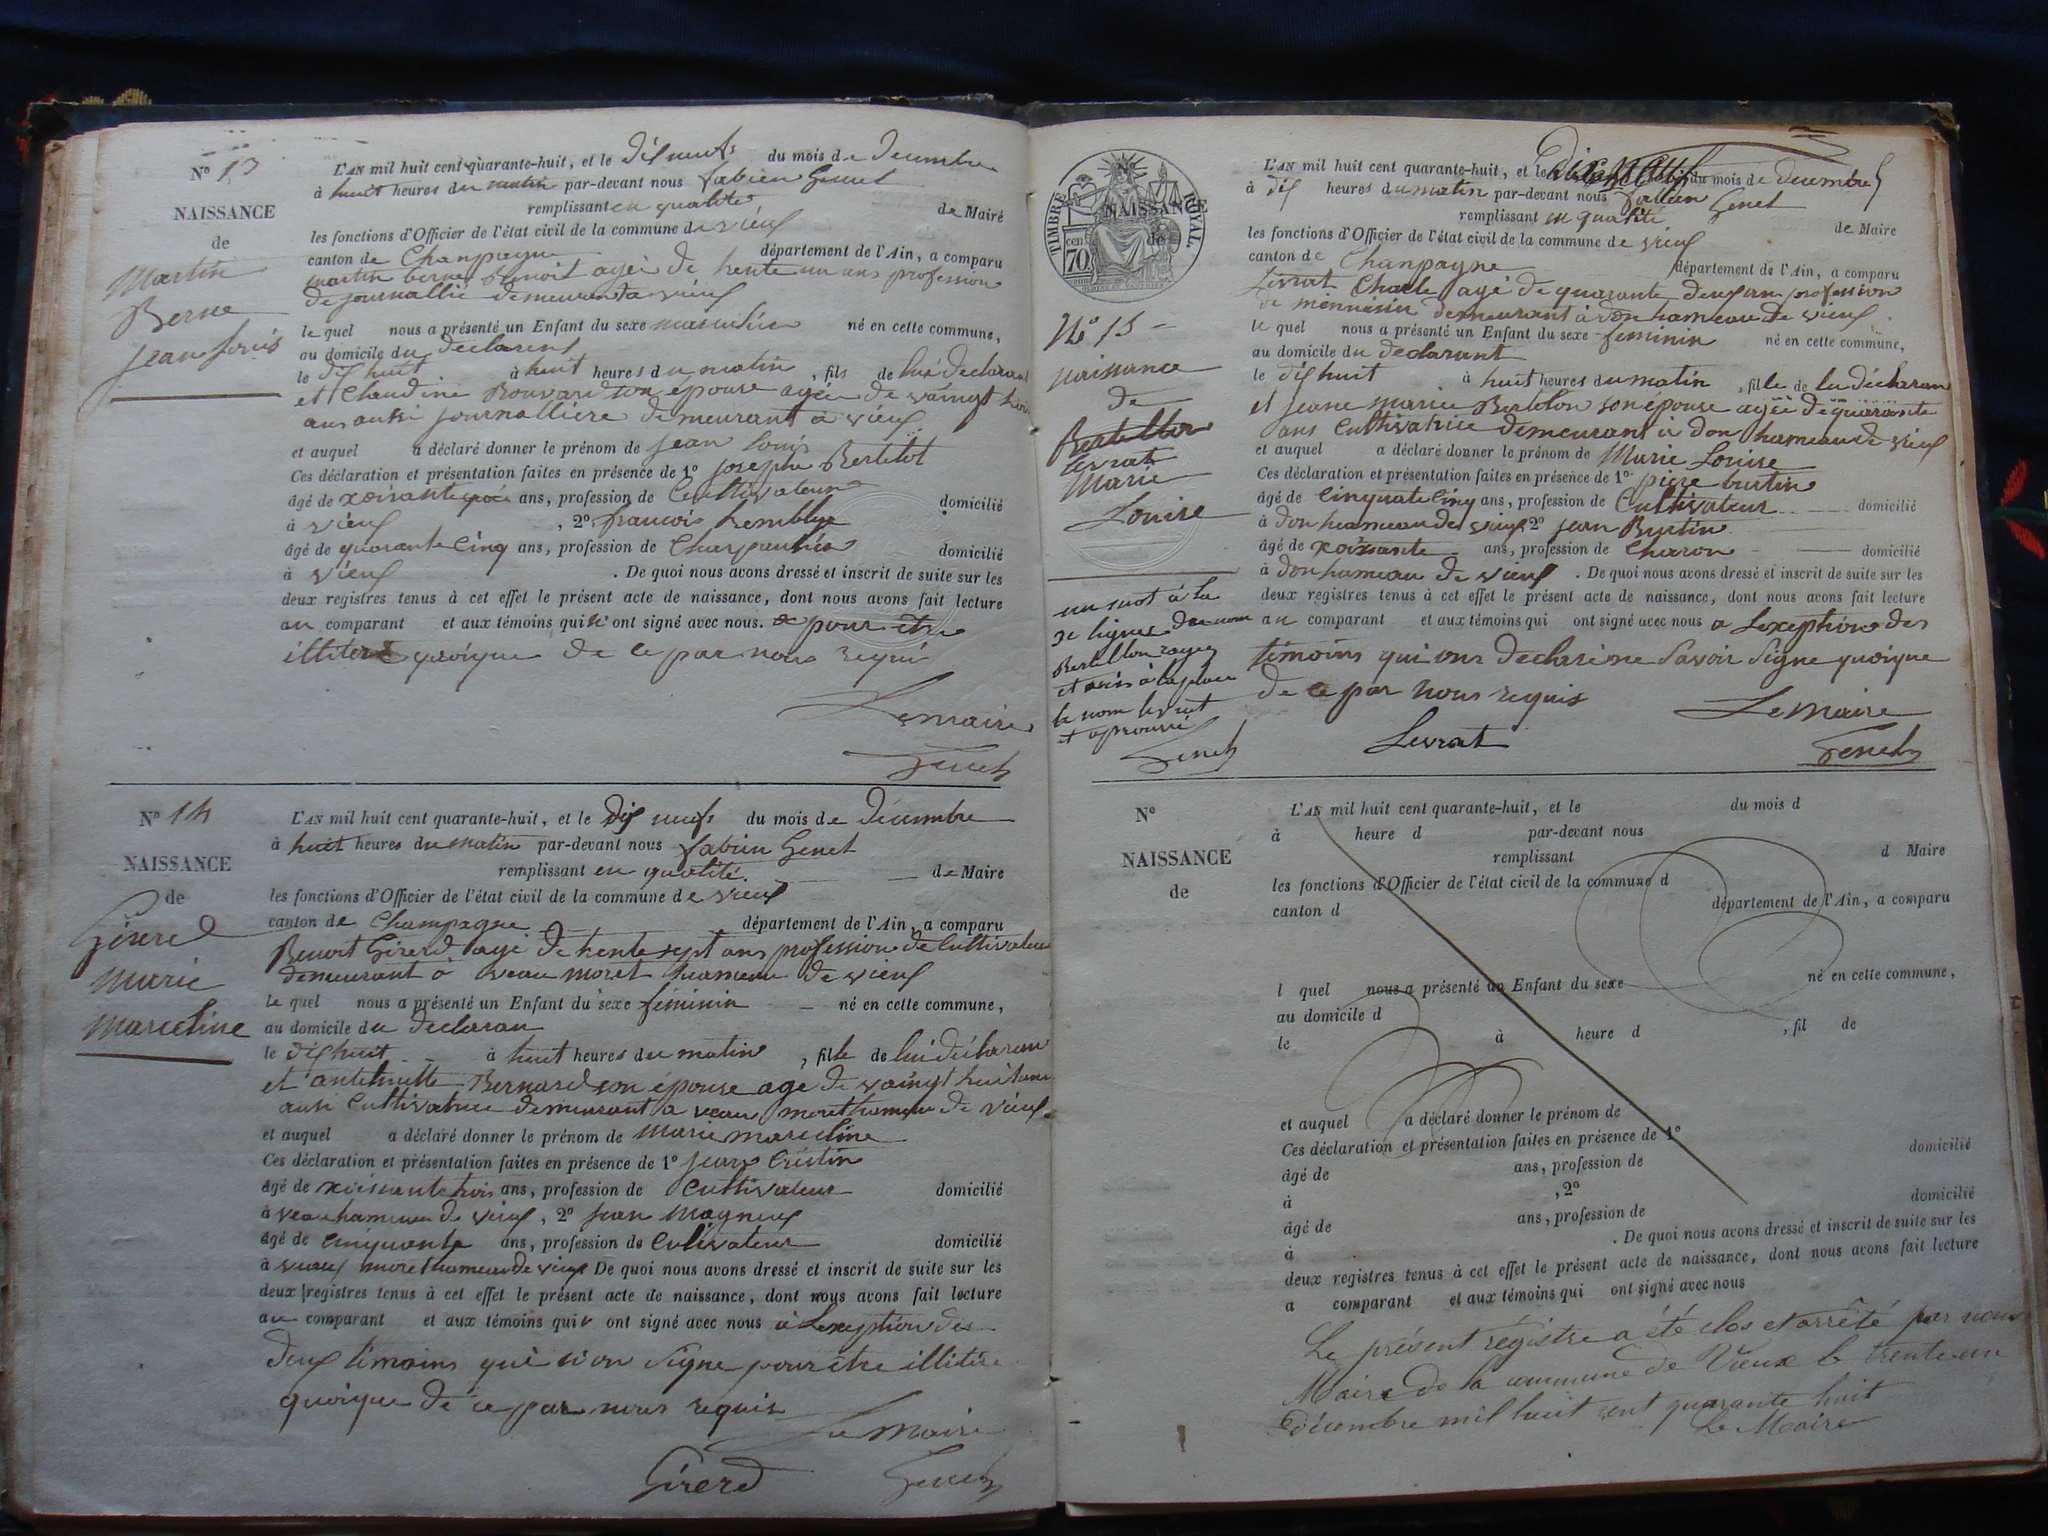 N° 13
NAISSANCE
de
Martin
Berne
jean louis
L'AN mil huit cent quarante-huit, et le dix neufs du mois de decembre
à huit heures du matin par-devant nous fabien Genet
remplissant en qualité de Maire
les fonctions d'Officier de l'état civil de la commune de vieux
canton de Champagne département de l'Ain, a comparu
martin berne Benoit agée de trente un ans profession
de journallié demeurant a vieux
le quel nous a présenté un Enfant du sexe masculin né en cette commune,
au domicile du declarent
le dix huit à huit heures du matin, fils de lui declarant
et Claudine Bouvard son épouse agée de vaingt
ans aussi journalliere demeurant a vieux
et auquel a déclaré donner le prénom de jean louis
Ces déclaration et présentation faites en présence de 1° joseph Bertelot
âgé de ans, profession de Cultivateur domicilié
à vieux, 2° francois
âgé de quarante Cinq ans, profession de Charpentier domicilié
à vieux. De quoi nous avons dressé et inscrit de suite sur les
deux registres tenus à cet effet le présent acte de naissance, dont nous avons fait lecture
au comparant et aux témoins qui n'ont signé avec nous. pour etre
illiteré quoique de ce par nous requi
Lemaire
Genet
N° 14
NAISSANCE
de
Girerd
Marie
Marceline
L'AN mil huit cent quarante-huit, et le dix neufs du mois de Décembre
à huit heures du matin par-devant nous fabien Genet
remplissant en qualité de Maire
les fonctions d'Officier de l'état civil de la commune de vieux
canton de Champagne département de l'Ain, a comparu
Benoit Girerd agé de trente sept ans profession de Cultivateur
demeurant à veau moret hameau de vieux
le quel nous a présenté un Enfant du sexe féminin né en cette commune,
au domicile du declaran
le dix huit à huit heures du matin, fille de lui déclaran
et antelmette Bernard son épouse age de vaingt huit ans
ausi Cultivatrice demeurant a veau moret hameau de vieux
et auquel a déclaré donner le prénom de Marie marceline
Ces déclaration et présentation faites en présence de 1° jean Cristin
âgé de xoissante trois ans, profession de Cultivateur domicilié
à veau hameau de vieux, 2° jean Magneux
âgé de cinquante ans, profession de Cultivateur domicilié
à moret hameau de vieux De quoi nous avons dressé et inscrit de suite sur les
deux registres tenus à cet effet le présent acte de naissance, dont nous avons fait lecture
au comparant et aux témoins qui ont signé avec nous à Lexeption des
deux témoins qui n'on signe pour etre illitére
quoique de ce par nous requis
Le maire
Girerd Genet
TIMBRE ROYAL
cen 70
NAISSANCE
de
N° 15
naissance
de
Bertellon
Levrat
Marie
Louise
un mot à la
2e ligne du nom
Bertellon rayez
et mis à la place
le nom levrat
et aprouvé
Genet
L'AN mil huit cent quarante-huit, et le dix neuf du mois de decembre
à dix heures du matin par-devant nous fabien Genet
remplissant en qualité de Maire
les fonctions d'Officier de l'état civil de la commune de vieux
canton de Chanpagne département de l'Ain, a comparu
Levrat Charle agé de quarante deux an profession
de menuisier demeurant à don hameau de vieux
le quel nous a présenté un Enfant du sexe feminin né en cette commune,
au domicile du declarant
le dix huit à huit heures du matin, fille de lu déclaran
et jeane marie Bertelon son épouse agée de quarante
ans Cultivatrice demeurant à don hameau de vieux
et auquel a déclaré donner le prénom de Marie Louise
Ces déclaration et présentation faites en présence de 1° piere burtin
âgé de Cinquate Cinq ans, profession de Cultivateur domicilié
à don hameau de vieux 2° jean Burtin
âgé de xoixante ans, profession de Charon domicilié
à don hameau de vieux. De quoi nous avons dressé et inscrit de suite sur les
deux registres tenus à cet effet le présent acte de naissance, dont nous avons fait lecture
au comparant et aux témoins qui ont signé avec nous a Lexeption des
témoins qui ons declaré ne savoir signe quoique
de ce par nous requis
Le Maire
Levrat Genet
N°
NAISSANCE
de
L'AN mil huit cent quarante-huit, et le du mois d
à heure d par-devant nous
remplissant d Maire
les fonctions d'Officier de l'état civil de la commune d
canton d département de l'Ain, a comparu
l quel nous a présenté un Enfant du sexe né en cette commune,
au domicile d
le à heure d , fil de
et auquel a déclaré donner le prénom de
Ces déclaration et présentation faites en présence de 1°
âgé de ans, profession de domicilié
à , 2°
âgé de ans, profession de domicilié
à . De quoi nous avons dressé et inscrit de suite sur les
deux registres tenus à cet effet le présent acte de naissance, dont nous avons fait lecture
a comparant et aux témoins qui ont signé avec nous
Le présent régistre a été clos et arrêté par nous
Maire de la commune de Vieux le trente un
Décembre mil huit cent quarante huit
Le Maire